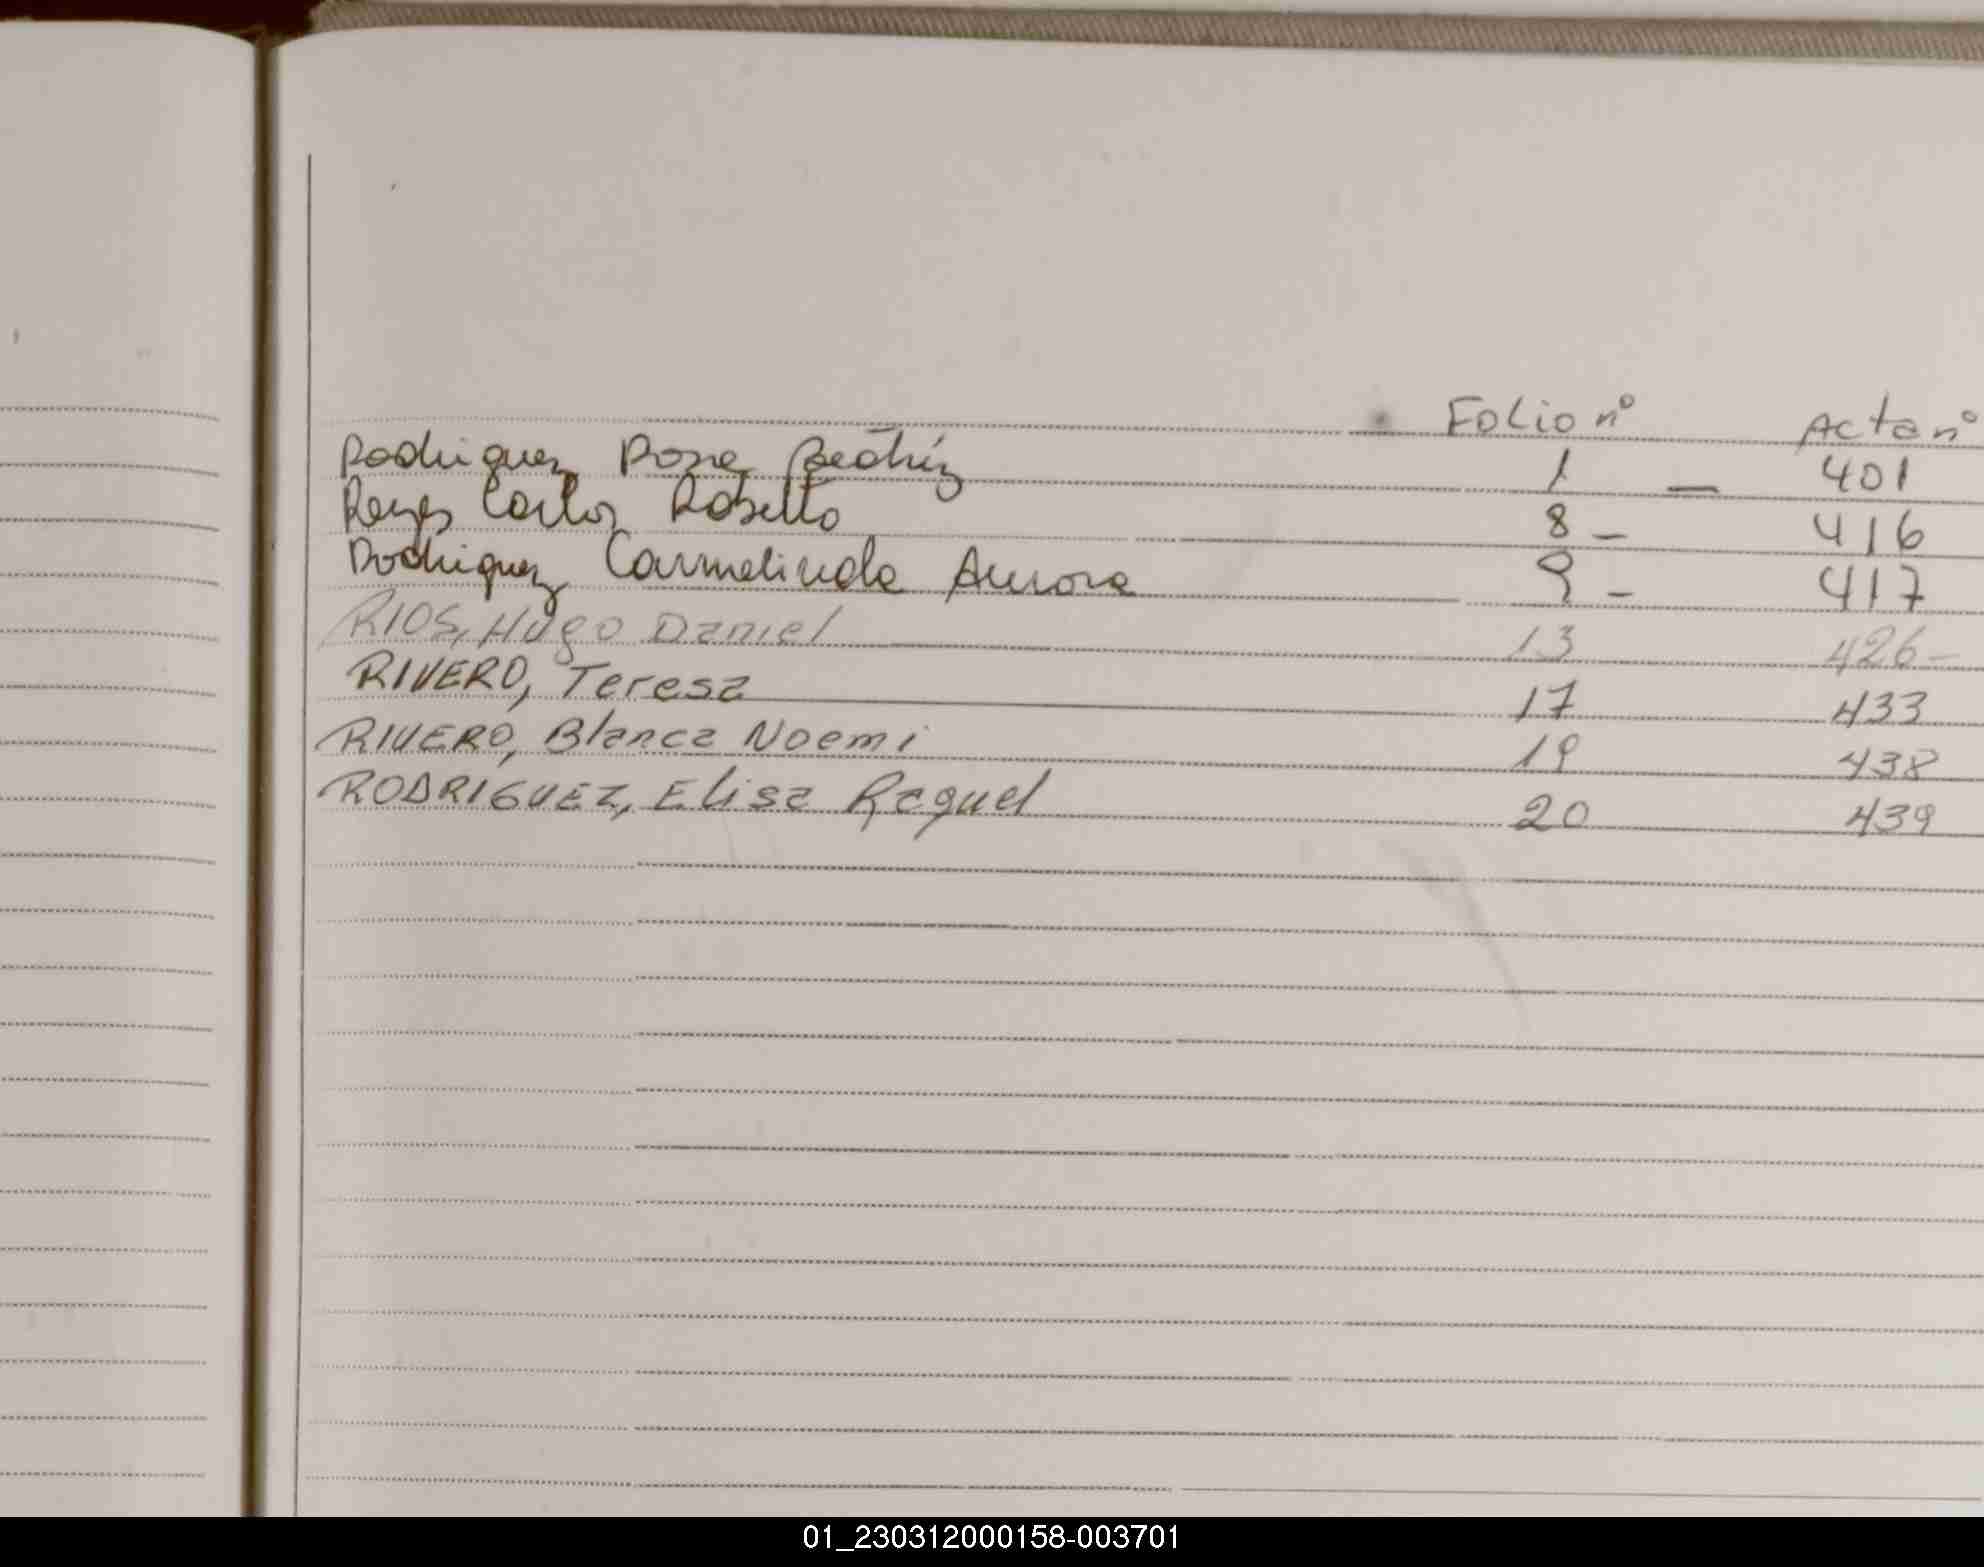 Folio nº Acta nº
Rodriguez Rosa Beatriz 1 — 401
Reyes Carlos Roberto 8 - 416
Rodriguez Carmelinda Aurora 9 - 417
RIOS, Hugo Daniel 13 426-
RIVERO, Teresa 17 433
RIVERO, Blanca Noemi 19 438
RODRIGUEZ, Elisa Raquel 20 439
01_230312000158-003701